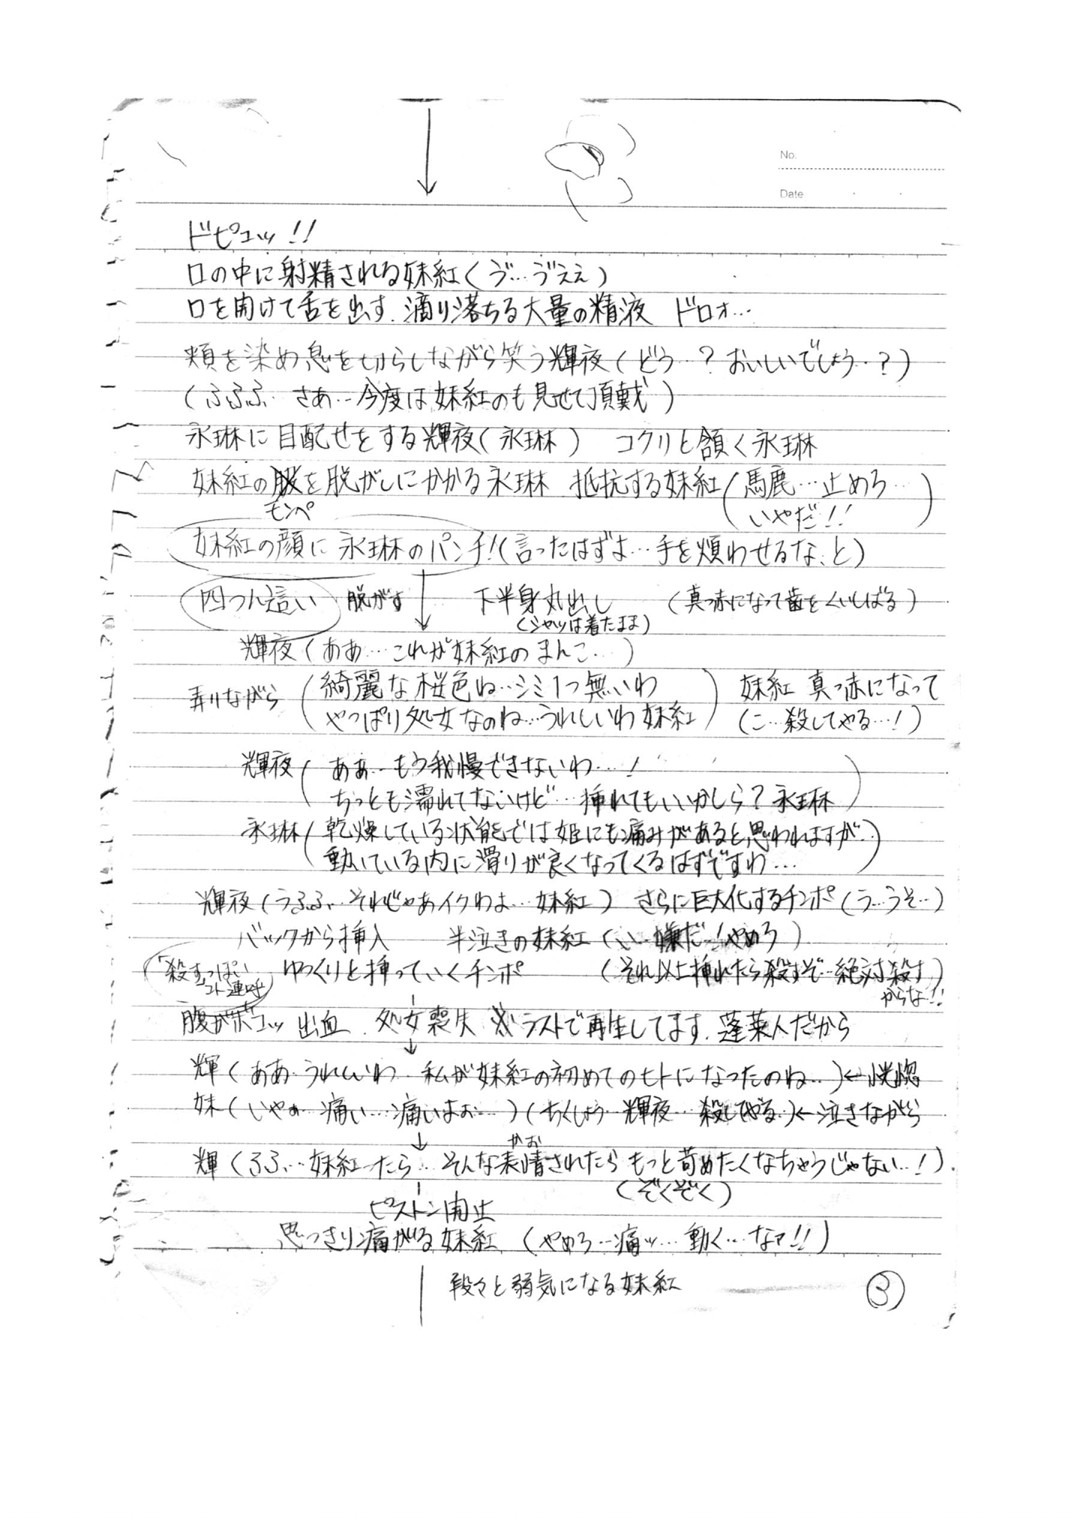 No.
Date
ドピュッ!!
口の中に射精される妹紅(ゔ…ゔええ)
口を開けて舌を出す.滴り落ちる大量の精液 ドロォ…
頬を染め息を切らしながら笑う輝夜(どう…?おいしいでしょう…?)
(ふふふ…さあ…今度は妹紅のも見せて頂戴)
永琳に目配せをする輝夜(永琳) コクリと頷く永琳
妹紅の服を脱がしにかかる永琳 抵抗する妹紅(馬鹿…止めろ…
モンペ いやだ!!)
妹紅の顔に永琳のパンチ!(言ったはずよ…手を煩わせるな、と)
四つん這い 脱がす 下半身丸出し (真っ赤になって歯をくいしばる)
(シャツは着たまま)
輝夜(ああ…これが妹紅のまんこ…)
弄りながら (綺麗な桜色ね…シミ1つ無いわ 妹紅 真っ赤になって
やっぱり処女なのね…うれしいわ妹紅) (こ…殺してやる…!)
輝夜(ああ…もう我慢できないわ…!
ちっとも濡れてないけど…挿れてもいいかしら?永琳)
永琳(乾燥している状態では姫にも痛みがあると思われますが…
動いている内に滑りが良くなってくるはずですわ…)
輝夜(うふふ…それじゃあイクわよ…妹紅) さらに巨大化するチンポ(う…うそ…)
バックから挿入 半泣きの妹紅(い…嫌だ…!やめろ)
「殺す」っぽい ゆっくりと挿っていくチンポ (それ以上挿れたら殺すぞ…絶対殺す
コト連呼 からな!!)
腹がボコッ 出血 処女喪失 ※ラストで再生してます.蓬莱人だから
輝(ああ…うれしいわ…私が妹紅の初めてのヒトになったのね…)←恍惚
妹(いやぁ…痛い…痛いよぉ…)(ちくしょう…輝夜…殺してやる…)←泣きながら
輝(ふふ…妹紅ったら…そんな表情されたらもっと苛めたくなちゃうじゃない…!)
かお
(ぞくぞく)
ピストン開止
思っきり痛がる妹紅 (やめろ…痛ッ…動く…なァ!!)
段々と弱気になる妹紅
③